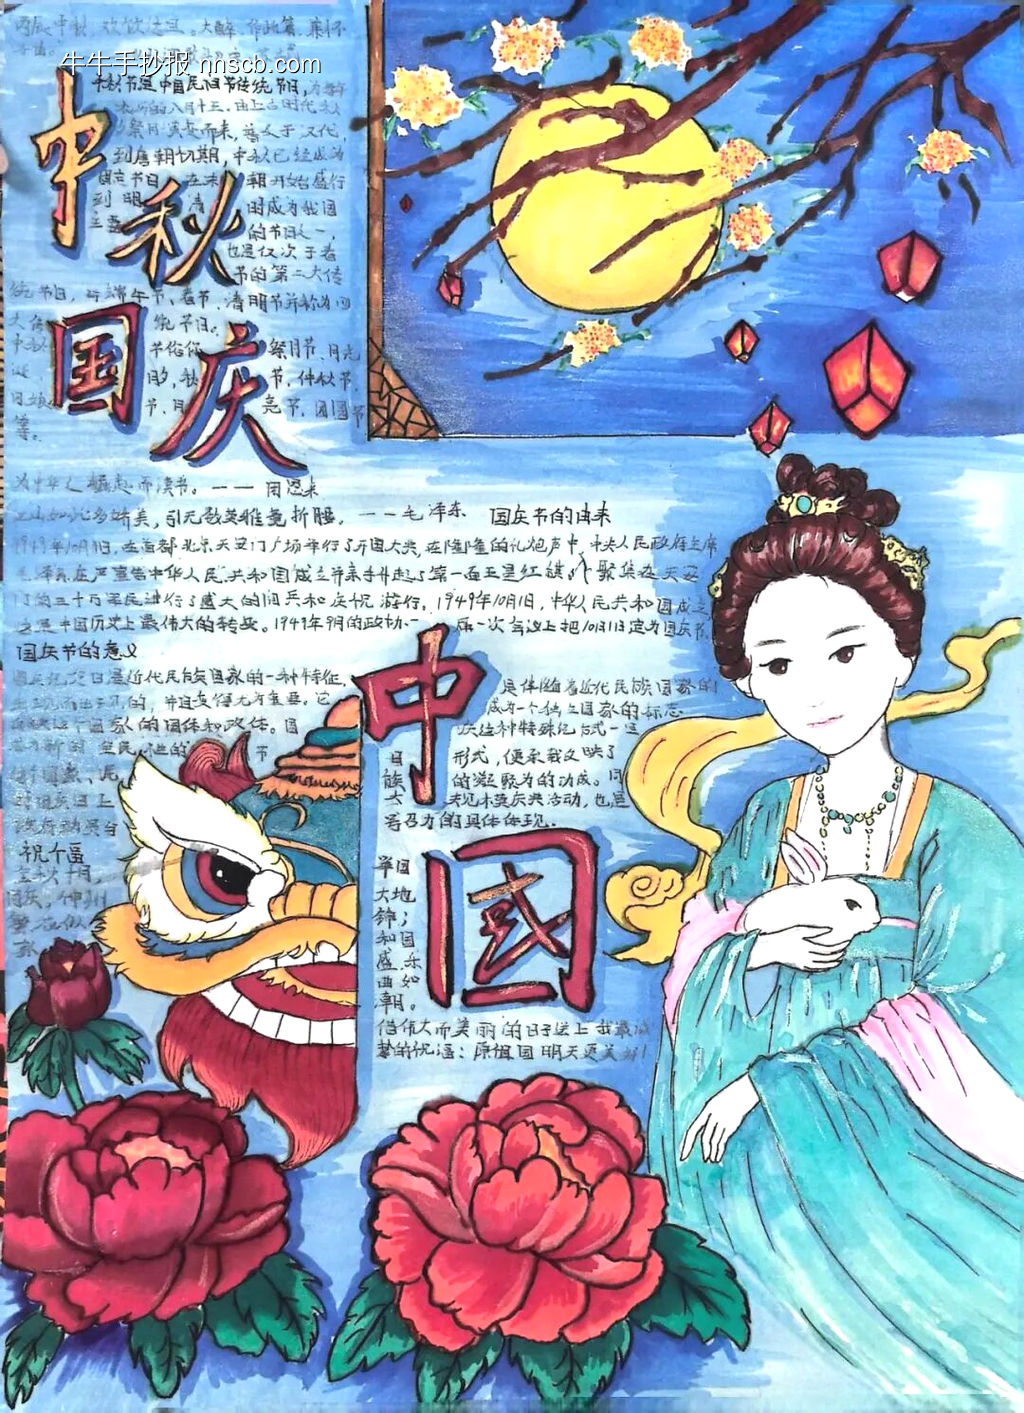 丙辰中秋，欢饮达旦。大醉，作此篇，兼怀
子由。
牛牛手抄报 nnscb.com
中秋国庆
中秋节是中国民间传统节日，为每年
农历的八月十五。由上古时代秋
祭月演变而来，普及于汉代，
到唐朝初期，中秋已经成为
固定节日。在宋朝开始盛行
到明 清 时成为我国
主要 的节日之一，
也是仅次于春
节的第二大传
统节日，与端午节、春节、清明节并称为四
大传 统节日。
中秋 节俗称 祭月节、月光
诞、 月夕、秋 节、仲秋节、
节、月 亮节、团圆节
等。
为中华之崛起而读书。——周恩来
江山如此多娇美，引无数英雄竞折腰。——毛泽东
国庆节的由来
1949年10月1日，在首都北京天安门广场举行了开国大典，在隆隆的礼炮声中，中央人民政府主席
毛泽东庄严宣告中华人民共和国成立并亲手升起了第一面五星红旗。聚集在天安
门的三十万军民进行了盛大的阅兵和庆祝游行。1949年10月1日，中华人民共和国成立
这是中国历史上最伟大的转变。1949年9月的政协一届一次会议上把10月1日定为国庆节。
国庆节的意义
国庆纪念日是近代民族国家的一种特征，是伴随着近代民族国家的
出现而出现的，并且变得尤为重要。它成为一个独立国家的标志
反映这个国家的国体和政体。国庆这种特殊纪念方式一旦
成为新的 全民性的 节日形式，便承载反映了
这个国家、民族的凝聚力的功成。同
时国庆日上 大规模庆典活动，也是
政府动员与 号召力的具体体现。
中國
祝个福
金秋十月， 举国
国庆，神州 大地
繁花似 锦；
家 和国
盛，乐
曲如
潮。
在伟大而美丽的日子送上我最诚
挚的祝福：愿祖国明天更美好！